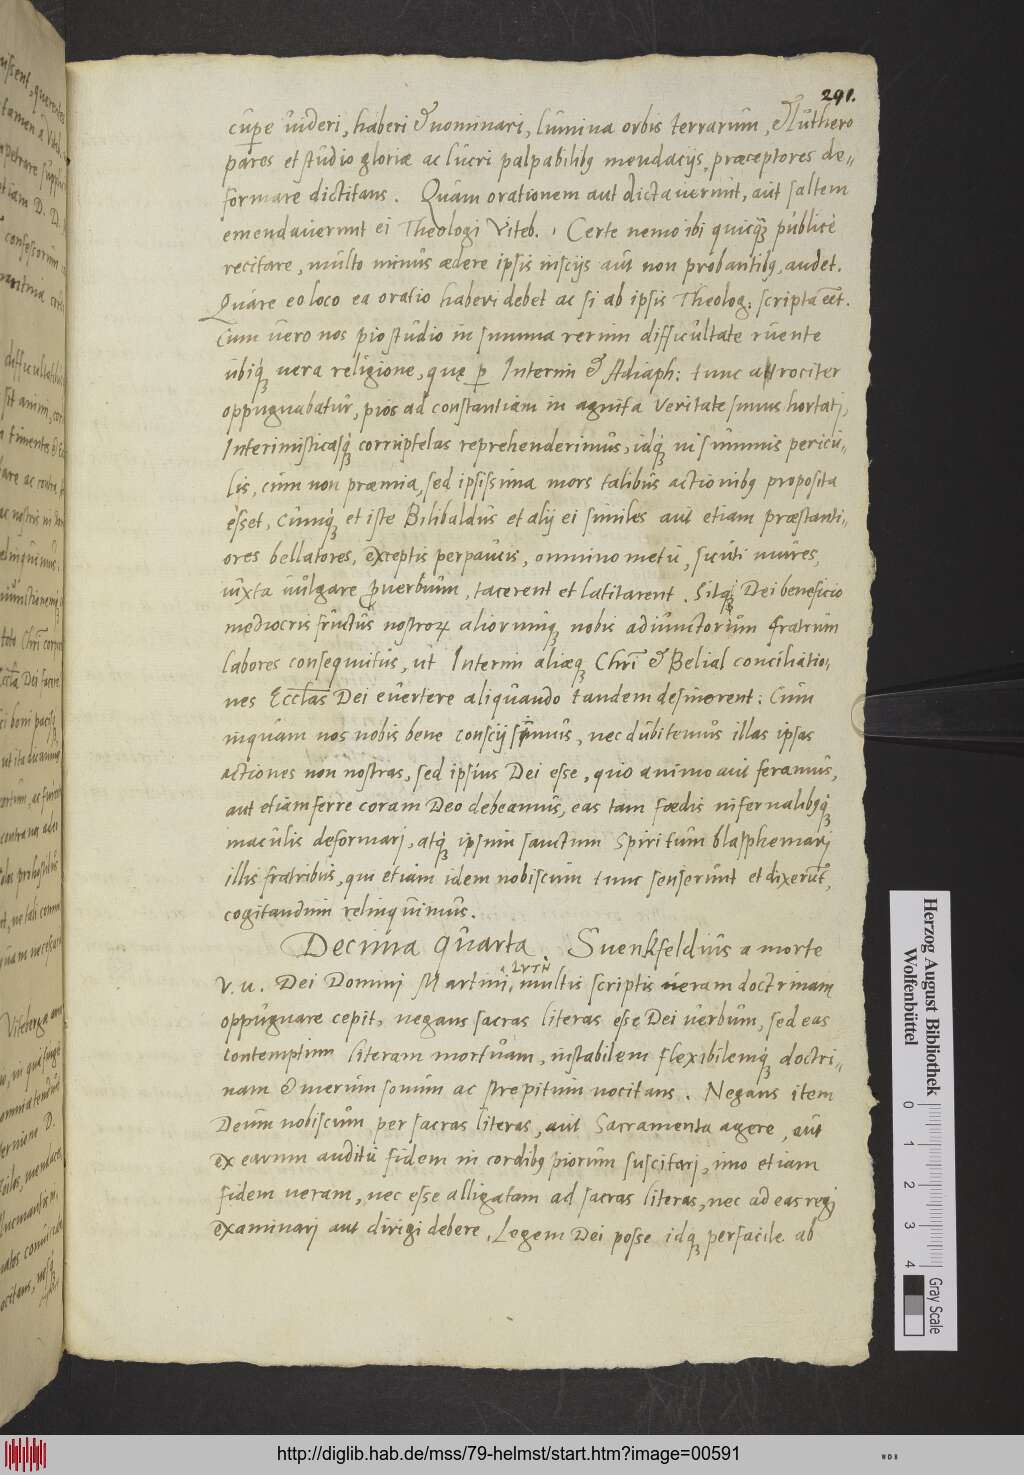 291.
cupe uideri, haberi & nominari, lumina orbis terrarum, & Luthero
pares et studio gloriæ ac lucri palpabilibꝫ mendacijs præceptores de=
formare dictitans. Quam orationem aut dictauerunt, aut saltem
emendauerunt ei Theologi Viteb. Certe nemo ibi quicqꝫ publicè
recitare, multo minus ædere ipsis inscijs aut non probantibꝫ, audet.
Quare eo loco ea oratio haberi debet ac si ab ipsis Theolog: scripta eet.
Cum uero nos pio studio in summa rerum difficultate ruente
ubiqꝫ uera religione, quę ꝑ Interim & Adiaph: tunc atrociter
oppugnabatur, pios ad constantiam in agnita veritate simus hortatj,
Interimisticasqꝫ corruptelas reprehenderimus, idqꝫ in summis pericu=
lis, cum non præmia, sed ipsissima mors talibus actionibꝫ proposita
esset, cumqꝫ et iste Bilibaldus et alij ei similes aut etiam præstanti=
ores bellatores, exceptis perpaucis, omnino metu, sicuti mures,
iuxta uulgare ꝓuerbium, tacerent et latitarent. Sitqꝫ Dei beneficio
mediocris fructus nostroꝝ aliorumqꝫ nobis adiunctorum fratrum
labores consequutus, ut Interim aliæqꝫ Chri & Belial conciliatio=
nes Eccłas Dei euertere aliquando tandem desinerent: Cum
inquam nos nobis bene conscij simus, nec dubitemus illas ipsas
actiones non nostras, sed ipsius Dei esse, quo animo aut feramus,
aut etiam ferre coram Deo debeamus, eas tam fœdis infernalibꝫqꝫ
maculis deformarj, atqꝫ ipsum sanctum Spiritum blasphemarj
illis fratribus, qui etiam idem nobiscum tunc senserunt et dixerut,
cogitandum relinquimus.
Decima quarta. Suenkfeldius a morte
V. u. Dei Dominj Martinj, LVTH multis scriptis ueram doctrinam
oppugnare cepit, negans sacras literas esse Dei uerbum, sed eas
contemptim literam mortuam, instabilem flexibilemqꝫ doctri=
nam & merum sonum ac strepitum uocitans. Negans item
Deum nobiscum per sacras literas, aut Sacramenta agere, aut
ex earum auditu fidem in cordibꝫ piorum suscitarj, imo etiam
fidem ueram, nec esse alligatam ad sacras literas, nec ad eas regj
examinarj aut dirigi debere. Legem Dei posse idqꝫ perfacile ab
Herzog August Bibliothek
Wolfenbüttel
0 1 2 3 4
Gray Scale
http://diglib.hab.de/mss/79-helmst/start.htm?image=00591